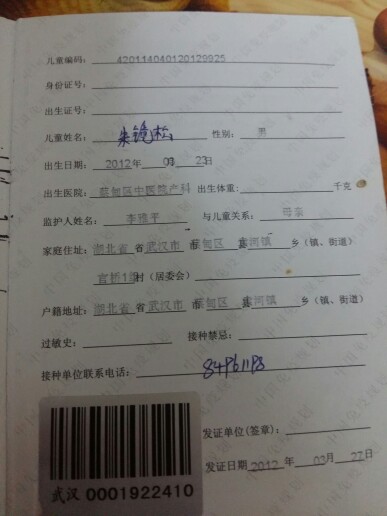 儿童编码: 420114040120129925
身份证号:
出生证号:
儿童姓名: 朱镜松 性别: 男
出生日期: 2012年 03 23日
出生医院: 蔡甸区中医院产科 出生体重: 千克
监护人姓名: 李雅平 与儿童关系: 母亲
家庭住址: 湖北省 省 武汉市 市 蔡甸区 河镇 乡(镇、街道)
官桥1 村(居委会)
户籍地址: 湖北省 省 武汉市 市 蔡甸区 河镇 乡(镇、街道)
过敏史: 接种禁忌:
接种单位联系电话: 84961193
发证单位(签章):
发证日期 2012 年 03月 27日
武汉 0001922410